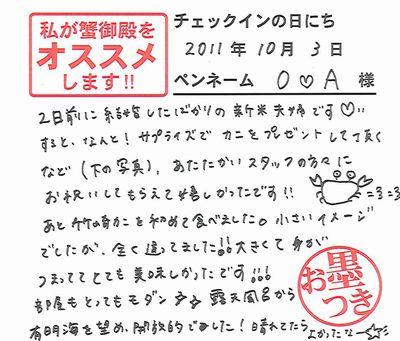 私が蟹御殿を
オススメ
します!!
チェックインの日にち
2011年10月3日
ペンネーム O♡A 様
2日前に結婚したばかりの新米夫婦です♡
すると、なんと! サプライズで カニをプレゼントして頂く
など(下の写真)、あたたかいスタッフの方々に
お祝いしてもらえて嬉しかったです!!
あと竹崎カニを初めて食べました。小さいイメージ
でしたが、全く違ってました!!大きくて身が
つまっててとても美味しかったです!!!
部屋もとってもモダンで 露天風呂から
有明海を望め、開放的でした! 晴れてたら よかったな
お墨つき